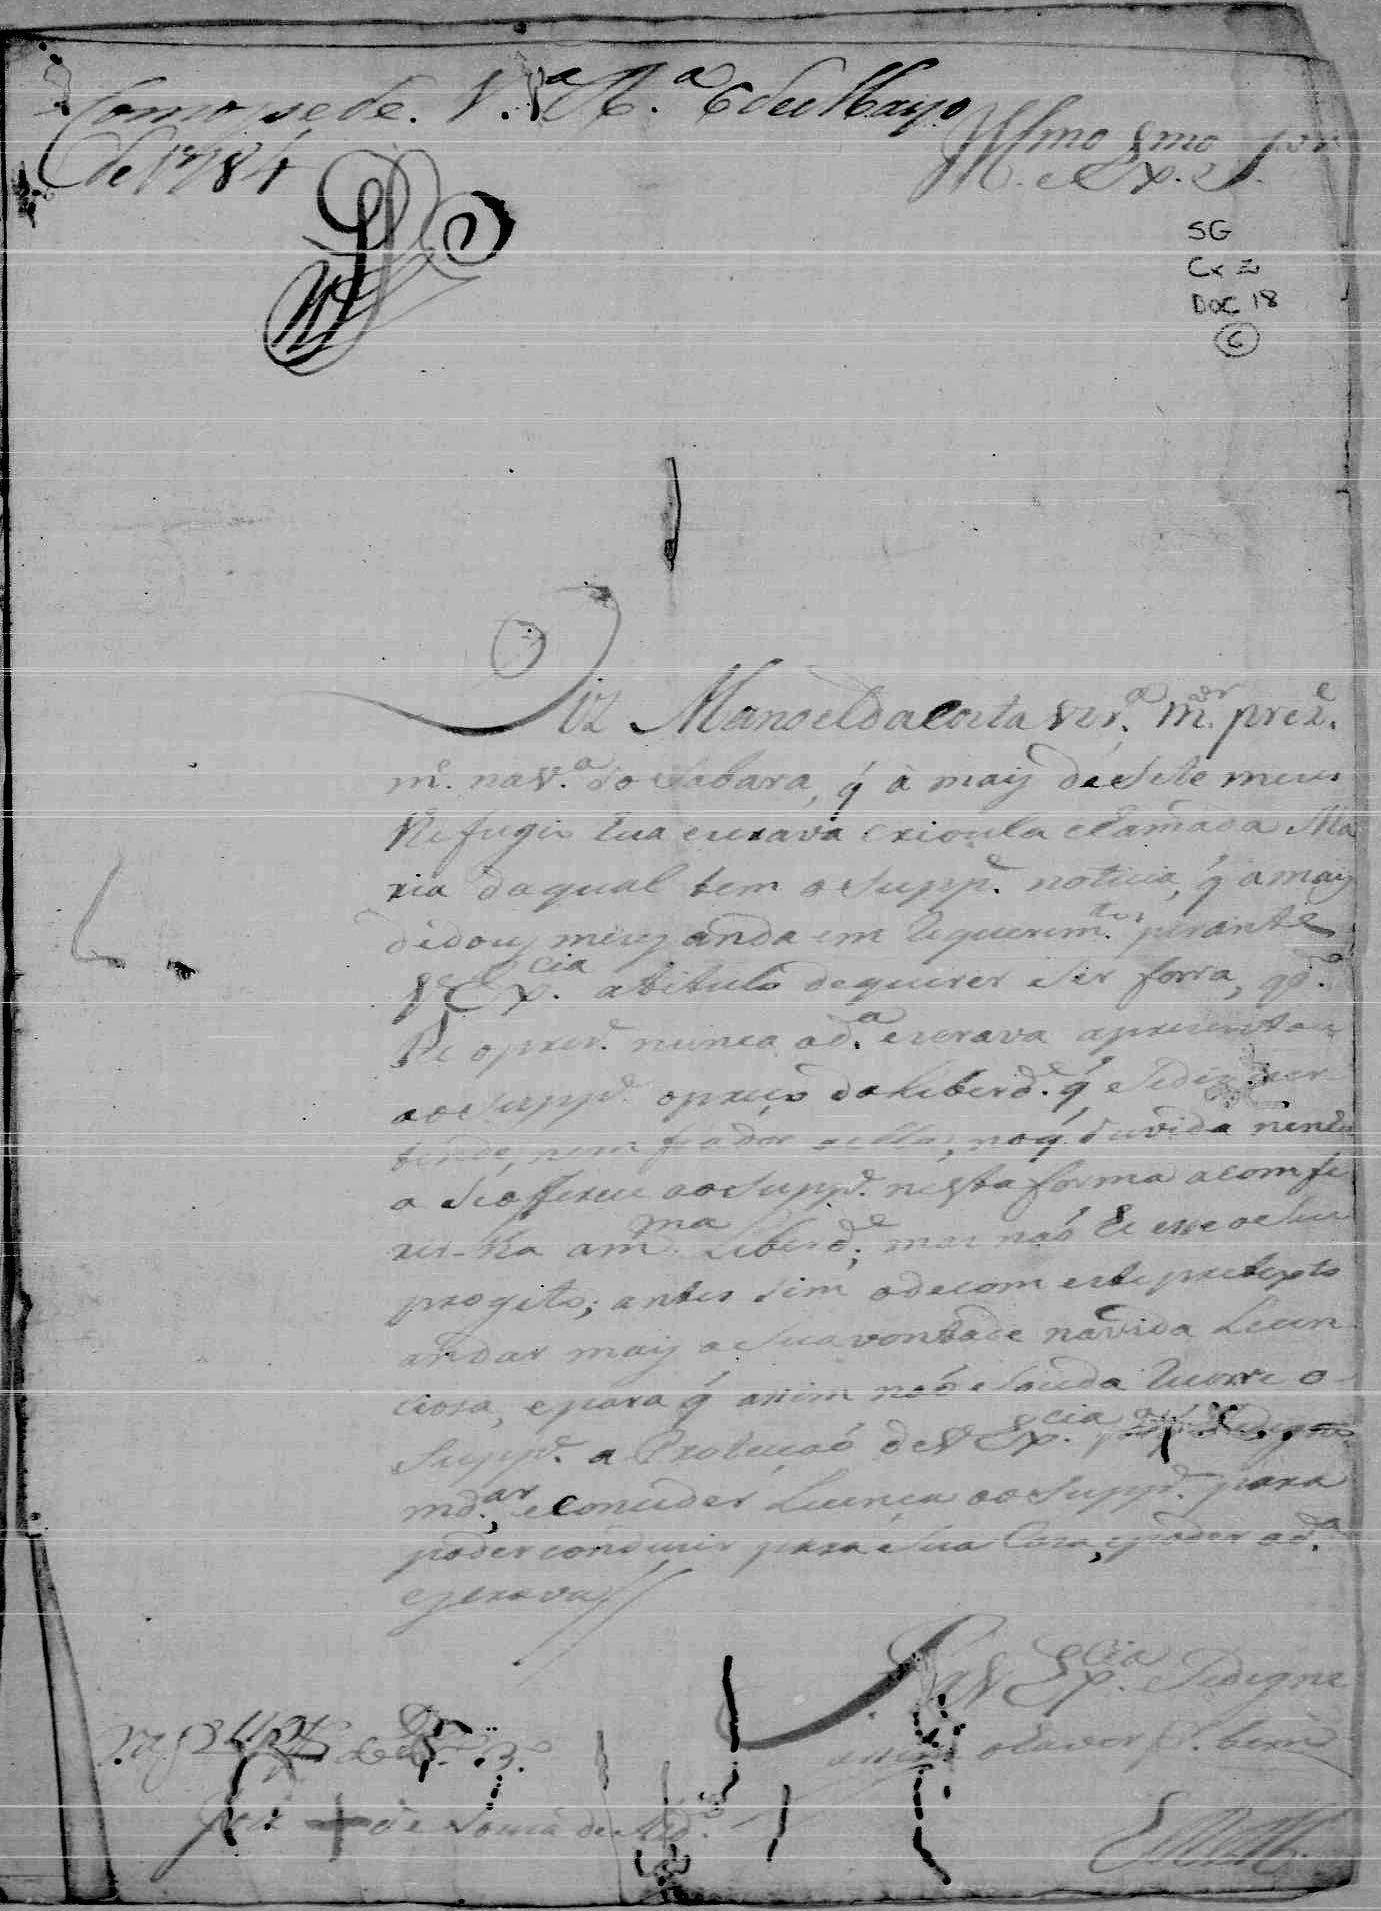 Como pede. V.ª R.ª 6 de Mayo
de 1784
Illmo e Exmo Snor
SG
Cx 2
DOC 18
6
Diz Manoel da Costa Vrª m.ºr prez.e
m.e na V.ª do Sabara, q̃ à mais de Sete mezes
lhe fugio Sua escrava crioula chamada Ma
ria da qual tem o Supp.e noticia, q̃ a mais
de dous mezes anda em Requerim.tos perante
V Ex.cia a titulo de querer ser forra, q.do
nunca a d.ª escrava aprezentou
ao Supp.e o preço da Liberd.e q̃ Se diz
nem fiador a ella, no q̃ duvida nenhũa
a Se offerece ao Supp.e nesta forma a comfe
rir-lha a m.ma Liberd.e; mas naõ he esse o Seu
progeto; antes Sim o de com este pretexto
andar mais a Sua vontade na vida Licen
cioza, e para q̃ assim naõ Suceda Recorre o
Supp.e a Proteçaõ de V Ex.cia
md.ar, e conceder Licença ao Supp.e para
poder conduzir para Sua Caza, e poder a d.ª
escrava//
P a V Ex.cia Se digne
o haver p.r bem
de Souza de
E R M.ce